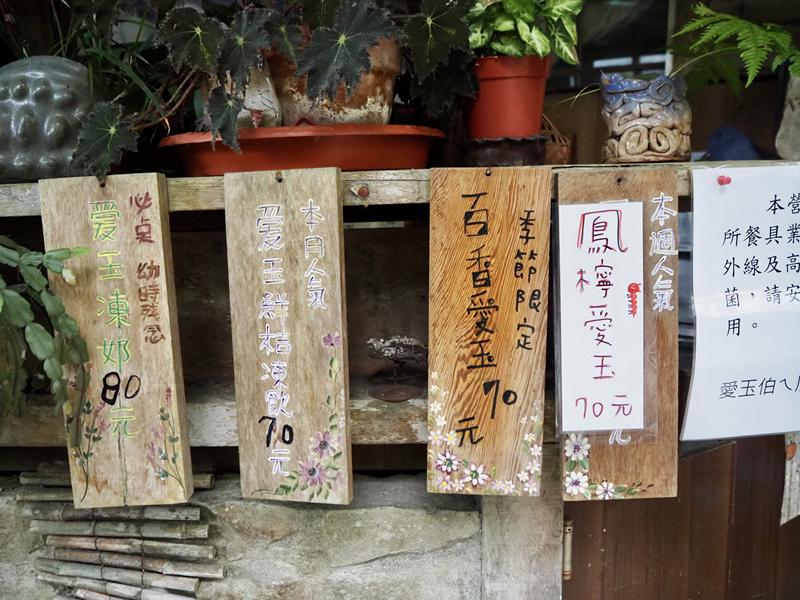 必桌 幼時殘念
爱玉凍奶
80元
本月人氣
爱玉鮮桔凍飲
70元
季節限定
百香愛玉
70元
本週人氣
鳳檸愛玉
70元
元
本營
所餐具業
外線及高
菌，請安
用。
愛玉伯ㄟ厝